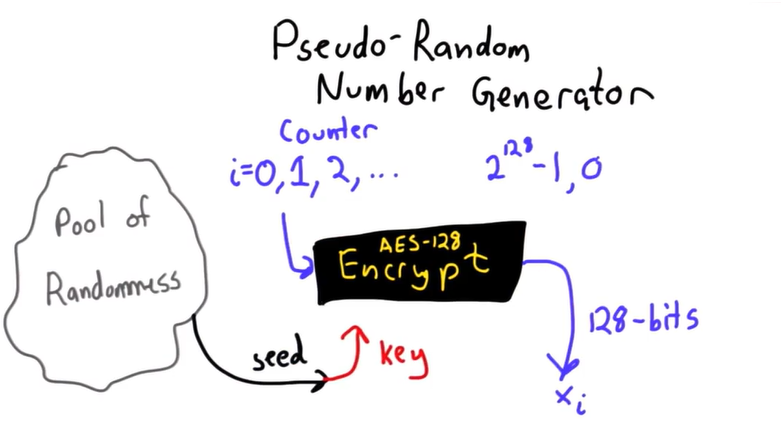 Pseudo-Random
Number Generator
Counter
i=0, 1, 2, ... 2^128 - 1, 0
Pool of
Randomness
AES-128
Encrypt
128-bits
seed
key
x_i